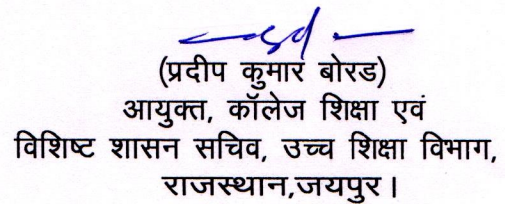 -sd-
(प्रदीप कुमार बोरड)
आयुक्त, कॉलेज शिक्षा एवं
विशिष्ट शासन सचिव, उच्च शिक्षा विभाग,
राजस्थान,जयपुर।